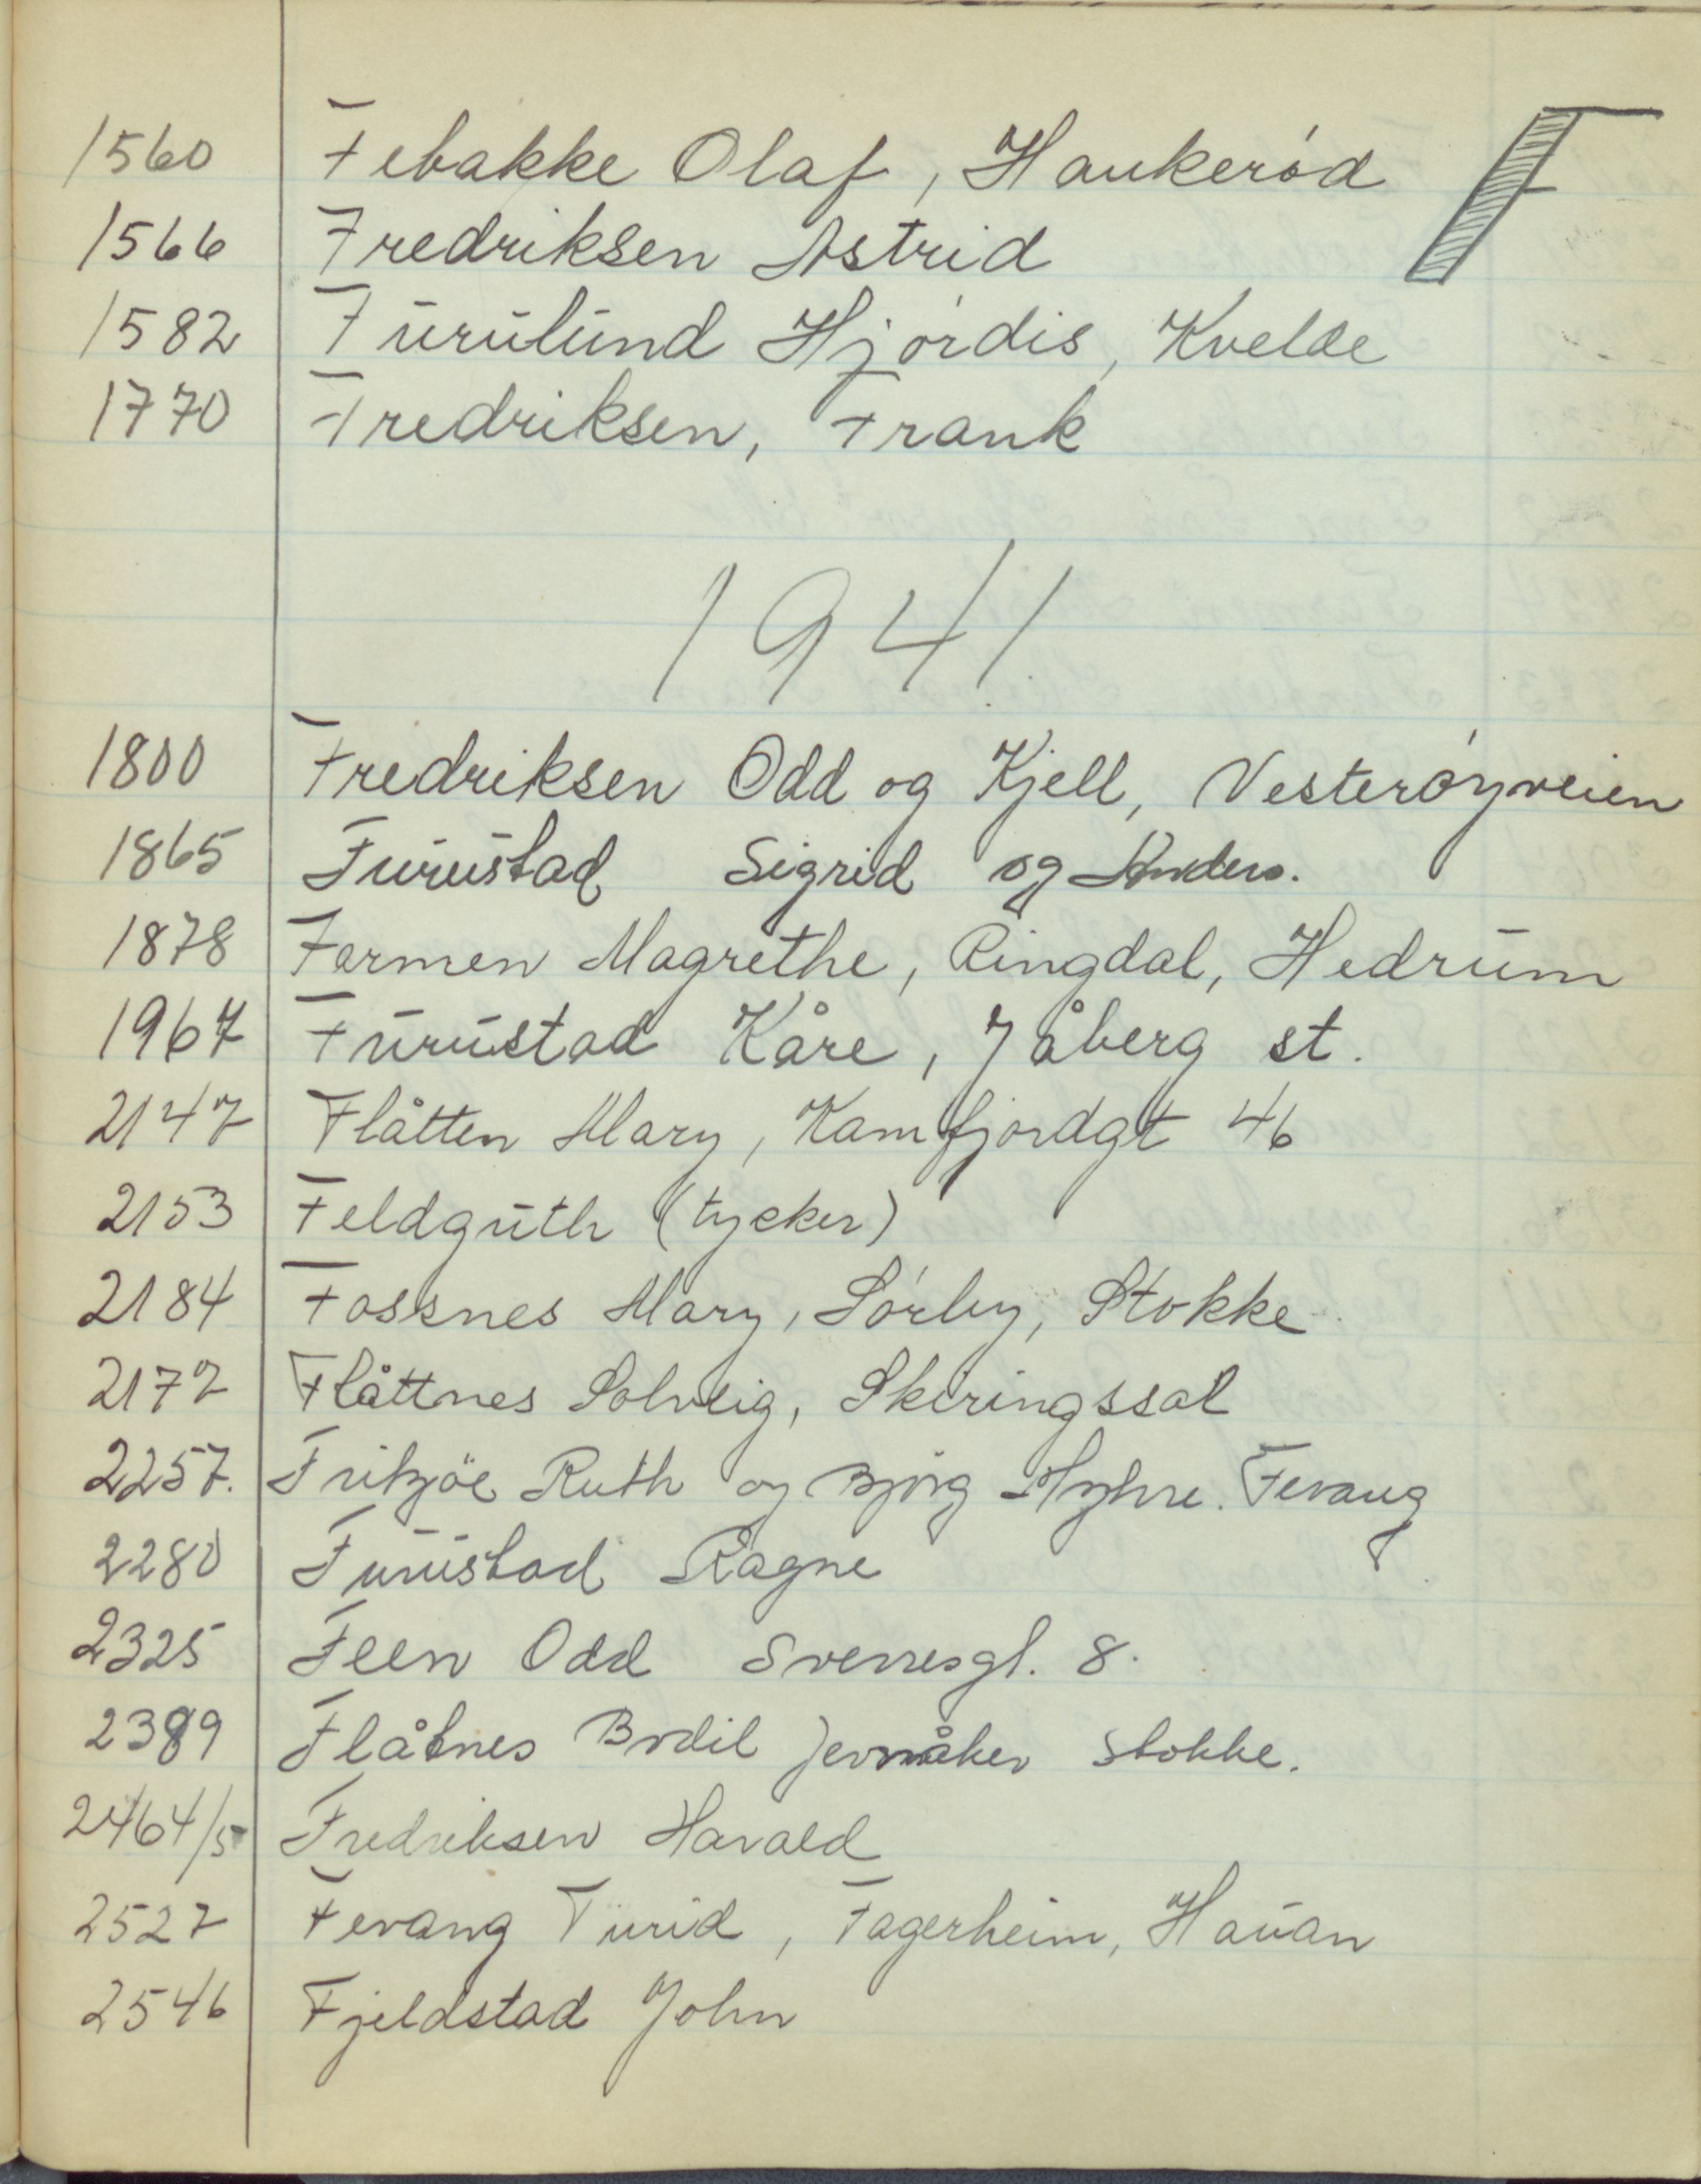 F
1560 Febakke Olaf, Haukerød
1566 Fredriksen Astrid
1582 Furulund Hjørdis, Kvelde
1770 Fredriksen, Frank
1941
1800 Fredriksen Odd og Kjell, Vesterøyveien
1865 Furustad Sigrid og Anders.
1878 Farmen Magrethe, Ringdal, Hedrum
1967 Furustad Kåre, Jåberg st.
2147 Flåtten Mary, Kamfjordgt 46
2153 Feldguth (tysker)
2184 Fossnes Mary, Sørby, Stokke
2172 Flåttnes Solveig, Skiringssal
2257. Ruth og Bjørg Myhre. Fevang
2280 Furustad Ragne
2325 Feen Odd Sverresgt. 8.
2389 Flåtnes Bodil Jernåker Stokke.
2464/5 Fredriksen Harald
2527 Fevang Turid, Fagerheim, Hauan
2546 Fjeldstad John